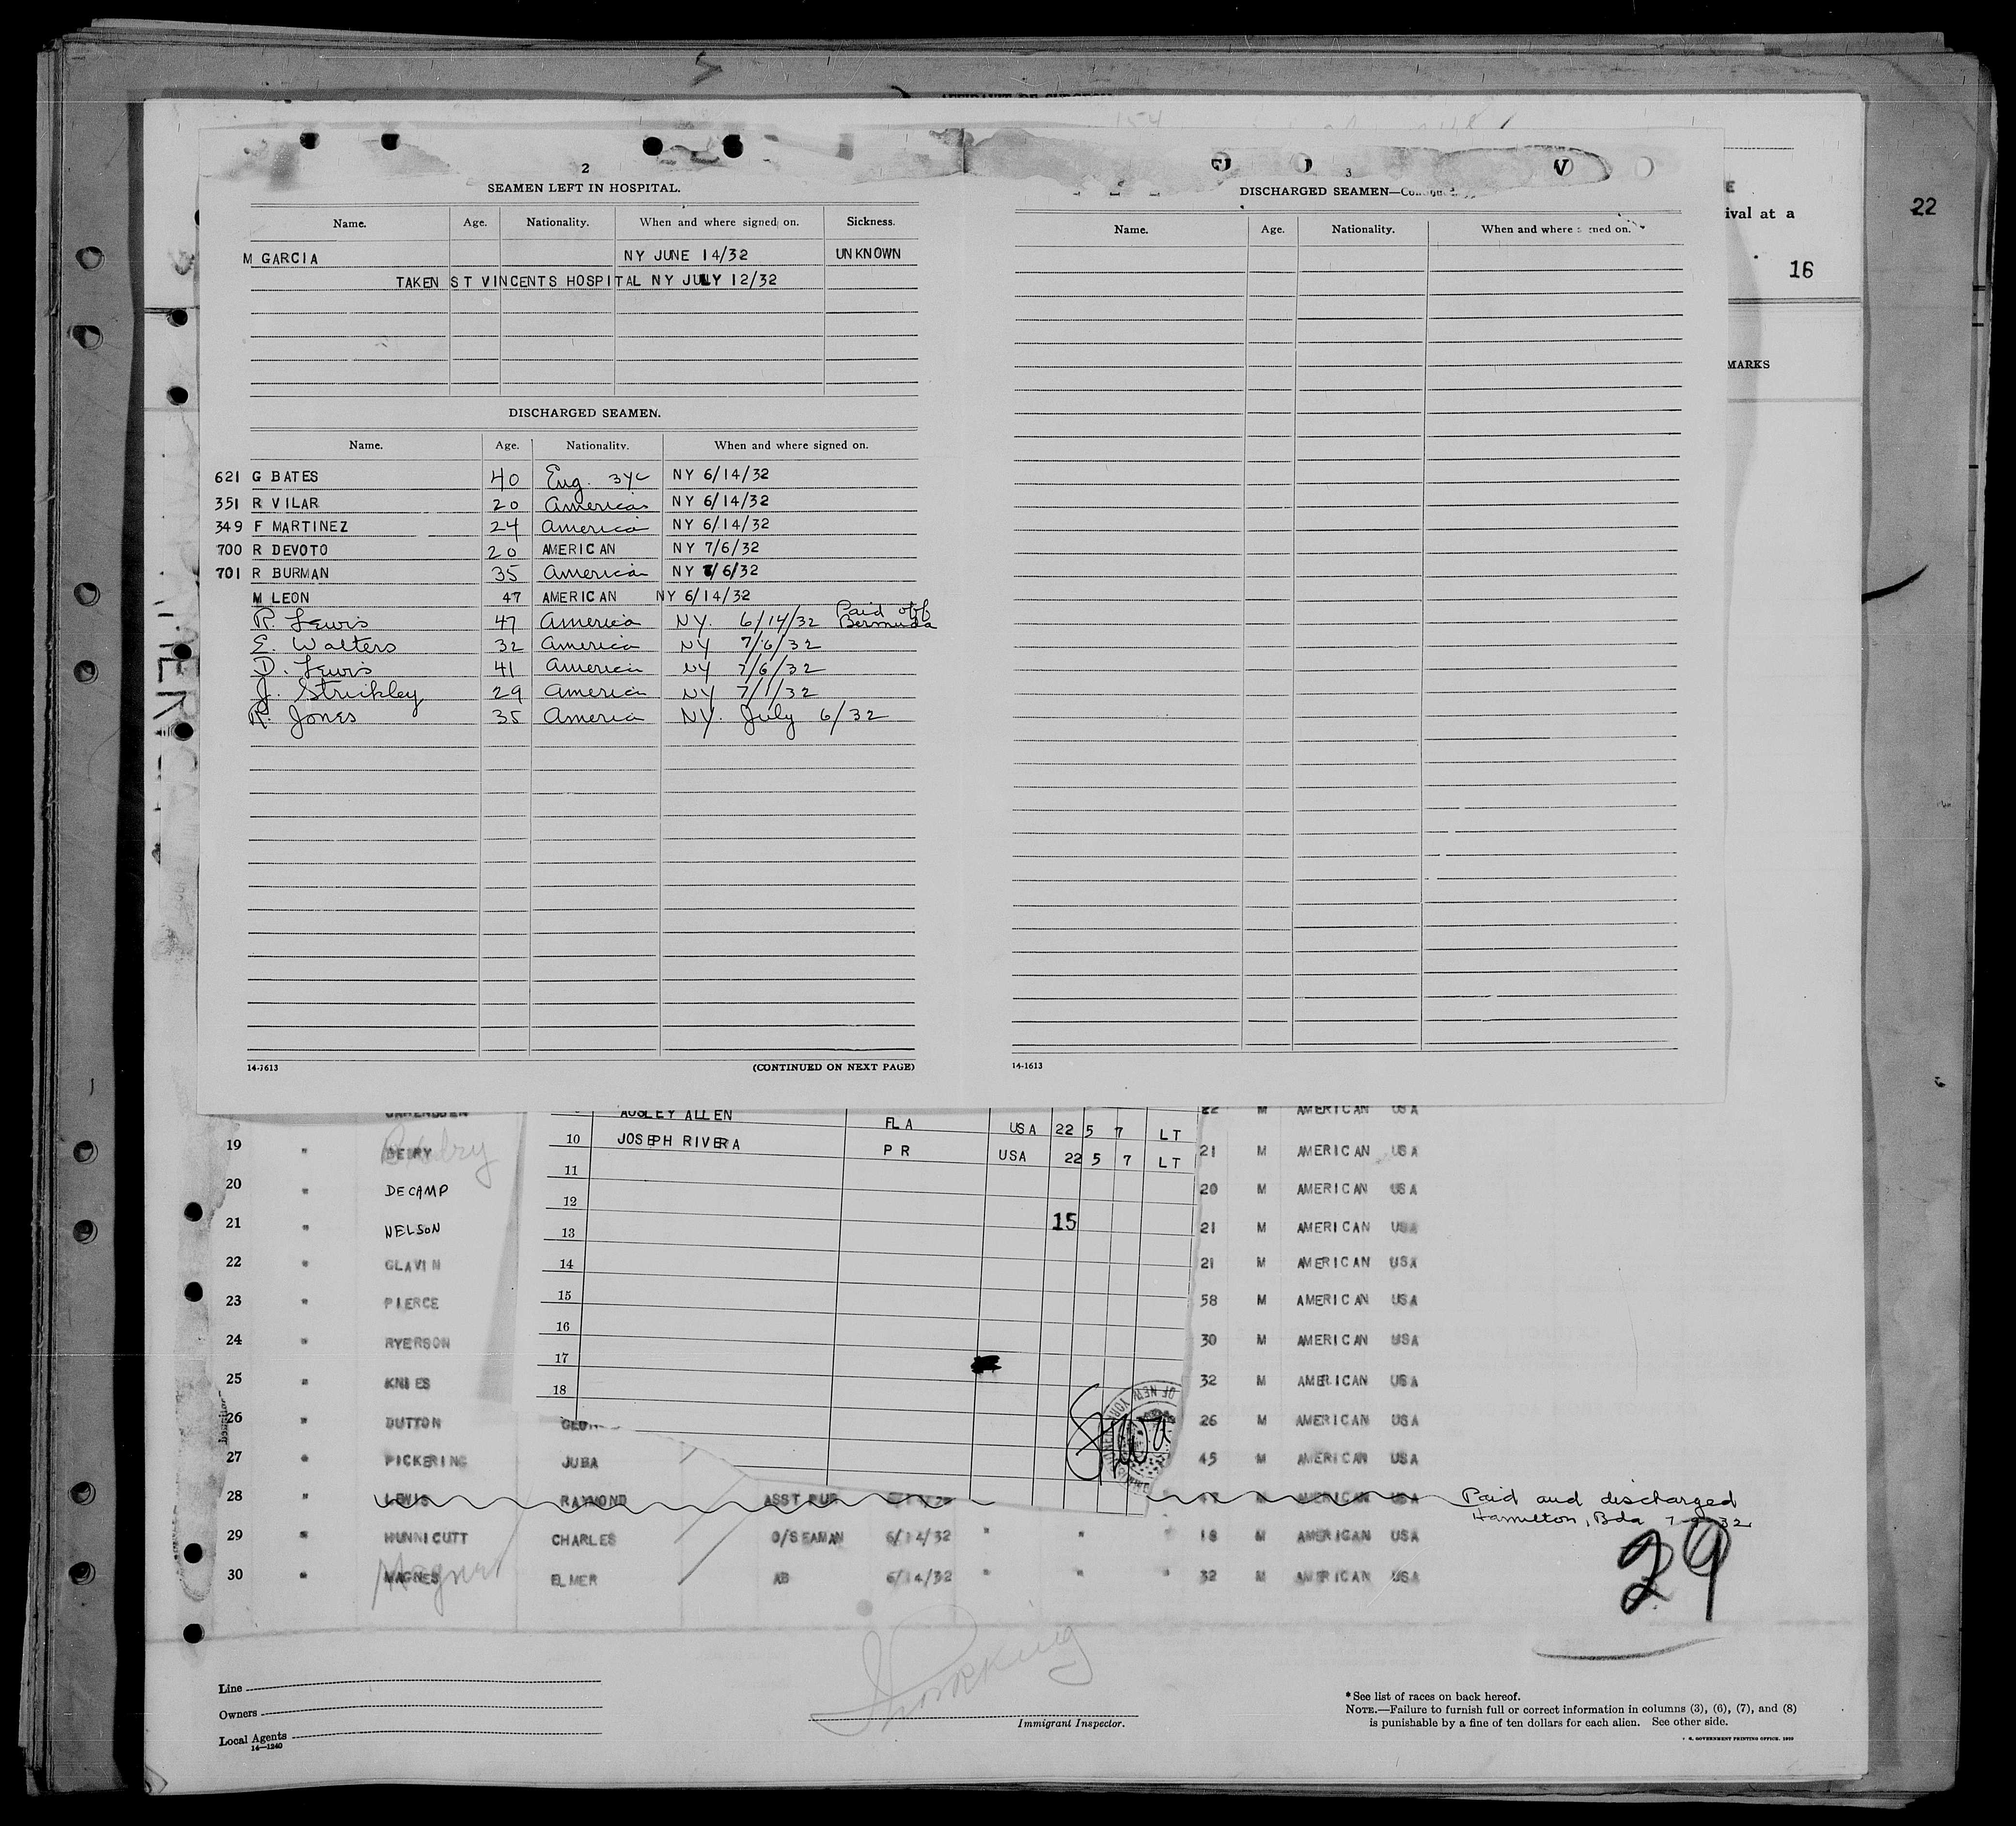 154
22
2
SEAMEN LEFT IN HOSPITAL.
Name. Age. Nationality. When and where signed on. Sickness.
M GARCIA NY JUNE 14/32 UNKNOWN
TAKEN ST VINCENTS HOSPITAL NY JULY 12/32
DISCHARGED SEAMEN.
Name. Age. Nationality. When and where signed on.
621 G BATES 40 Eng. NY 6/14/32
351 R VILAR 20 American NY 6/14/32
349 F MARTINEZ 24 America NY 6/14/32
700 R DEVOTO 20 AMERICAN NY 7/6/32
701 R BURMAN 35 America NY 7/6/32
M LEON 47 AMERICAN NY 6/14/32
R. Lewis 47 America NY. 6/14/32 Paid off Bermuda
E. Walters 32 America NY 7/6/32
D. Lewis 41 America NY 7/6/32
J. Strickley 29 America NY 7/1/32
R. Jones 35 America NY. July 6/32
14-1613 (CONTINUED ON NEXT PAGE)
3
DISCHARGED SEAMEN—
Name. Age. Nationality. When and where
14-1613
E
ival at a
16
MARKS
AUSLEY ALLEN FLA USA 22 5 7 LT
10 JOSEPH RIVERA PR USA 22 5 7 LT
11
12
13 15
14
15
16
17
18
22 M AMERICAN USA
19 " DEBRY 21 M AMERICAN USA
20 " DECAMP 20 M AMERICAN USA
21 " NELSON 21 M AMERICAN USA
22 " GLAVIN 21 M AMERICAN USA
23 " PIERCE 58 M AMERICAN USA
24 " RYERSON 30 M AMERICAN USA
25 " KNIES 32 M AMERICAN USA
26 " DUTTON 26 M AMERICAN USA
27 " PICKERING JUBA 45 M AMERICAN USA
28 " LEWIS RAYMOND ASST PUR 47 M AMERICAN USA Paid and discharged
Hamilton, Bda 32
29 " HUNNICUTT CHARLES O/SEAMAN 6/14/32 " " " 18 M AMERICAN USA
30 " MAGNES Magner ELMER AB 6/14/32 " " " 32 M AMERICAN USA
29
Line
Owners
Local Agents
14—1240
Immigrant Inspector.
*See list of races on back hereof.
NOTE.—Failure to furnish full or correct information in columns (3), (6), (7), and (8)
is punishable by a fine of ten dollars for each alien. See other side.
GOVERNMENT PRINTING OFFICE